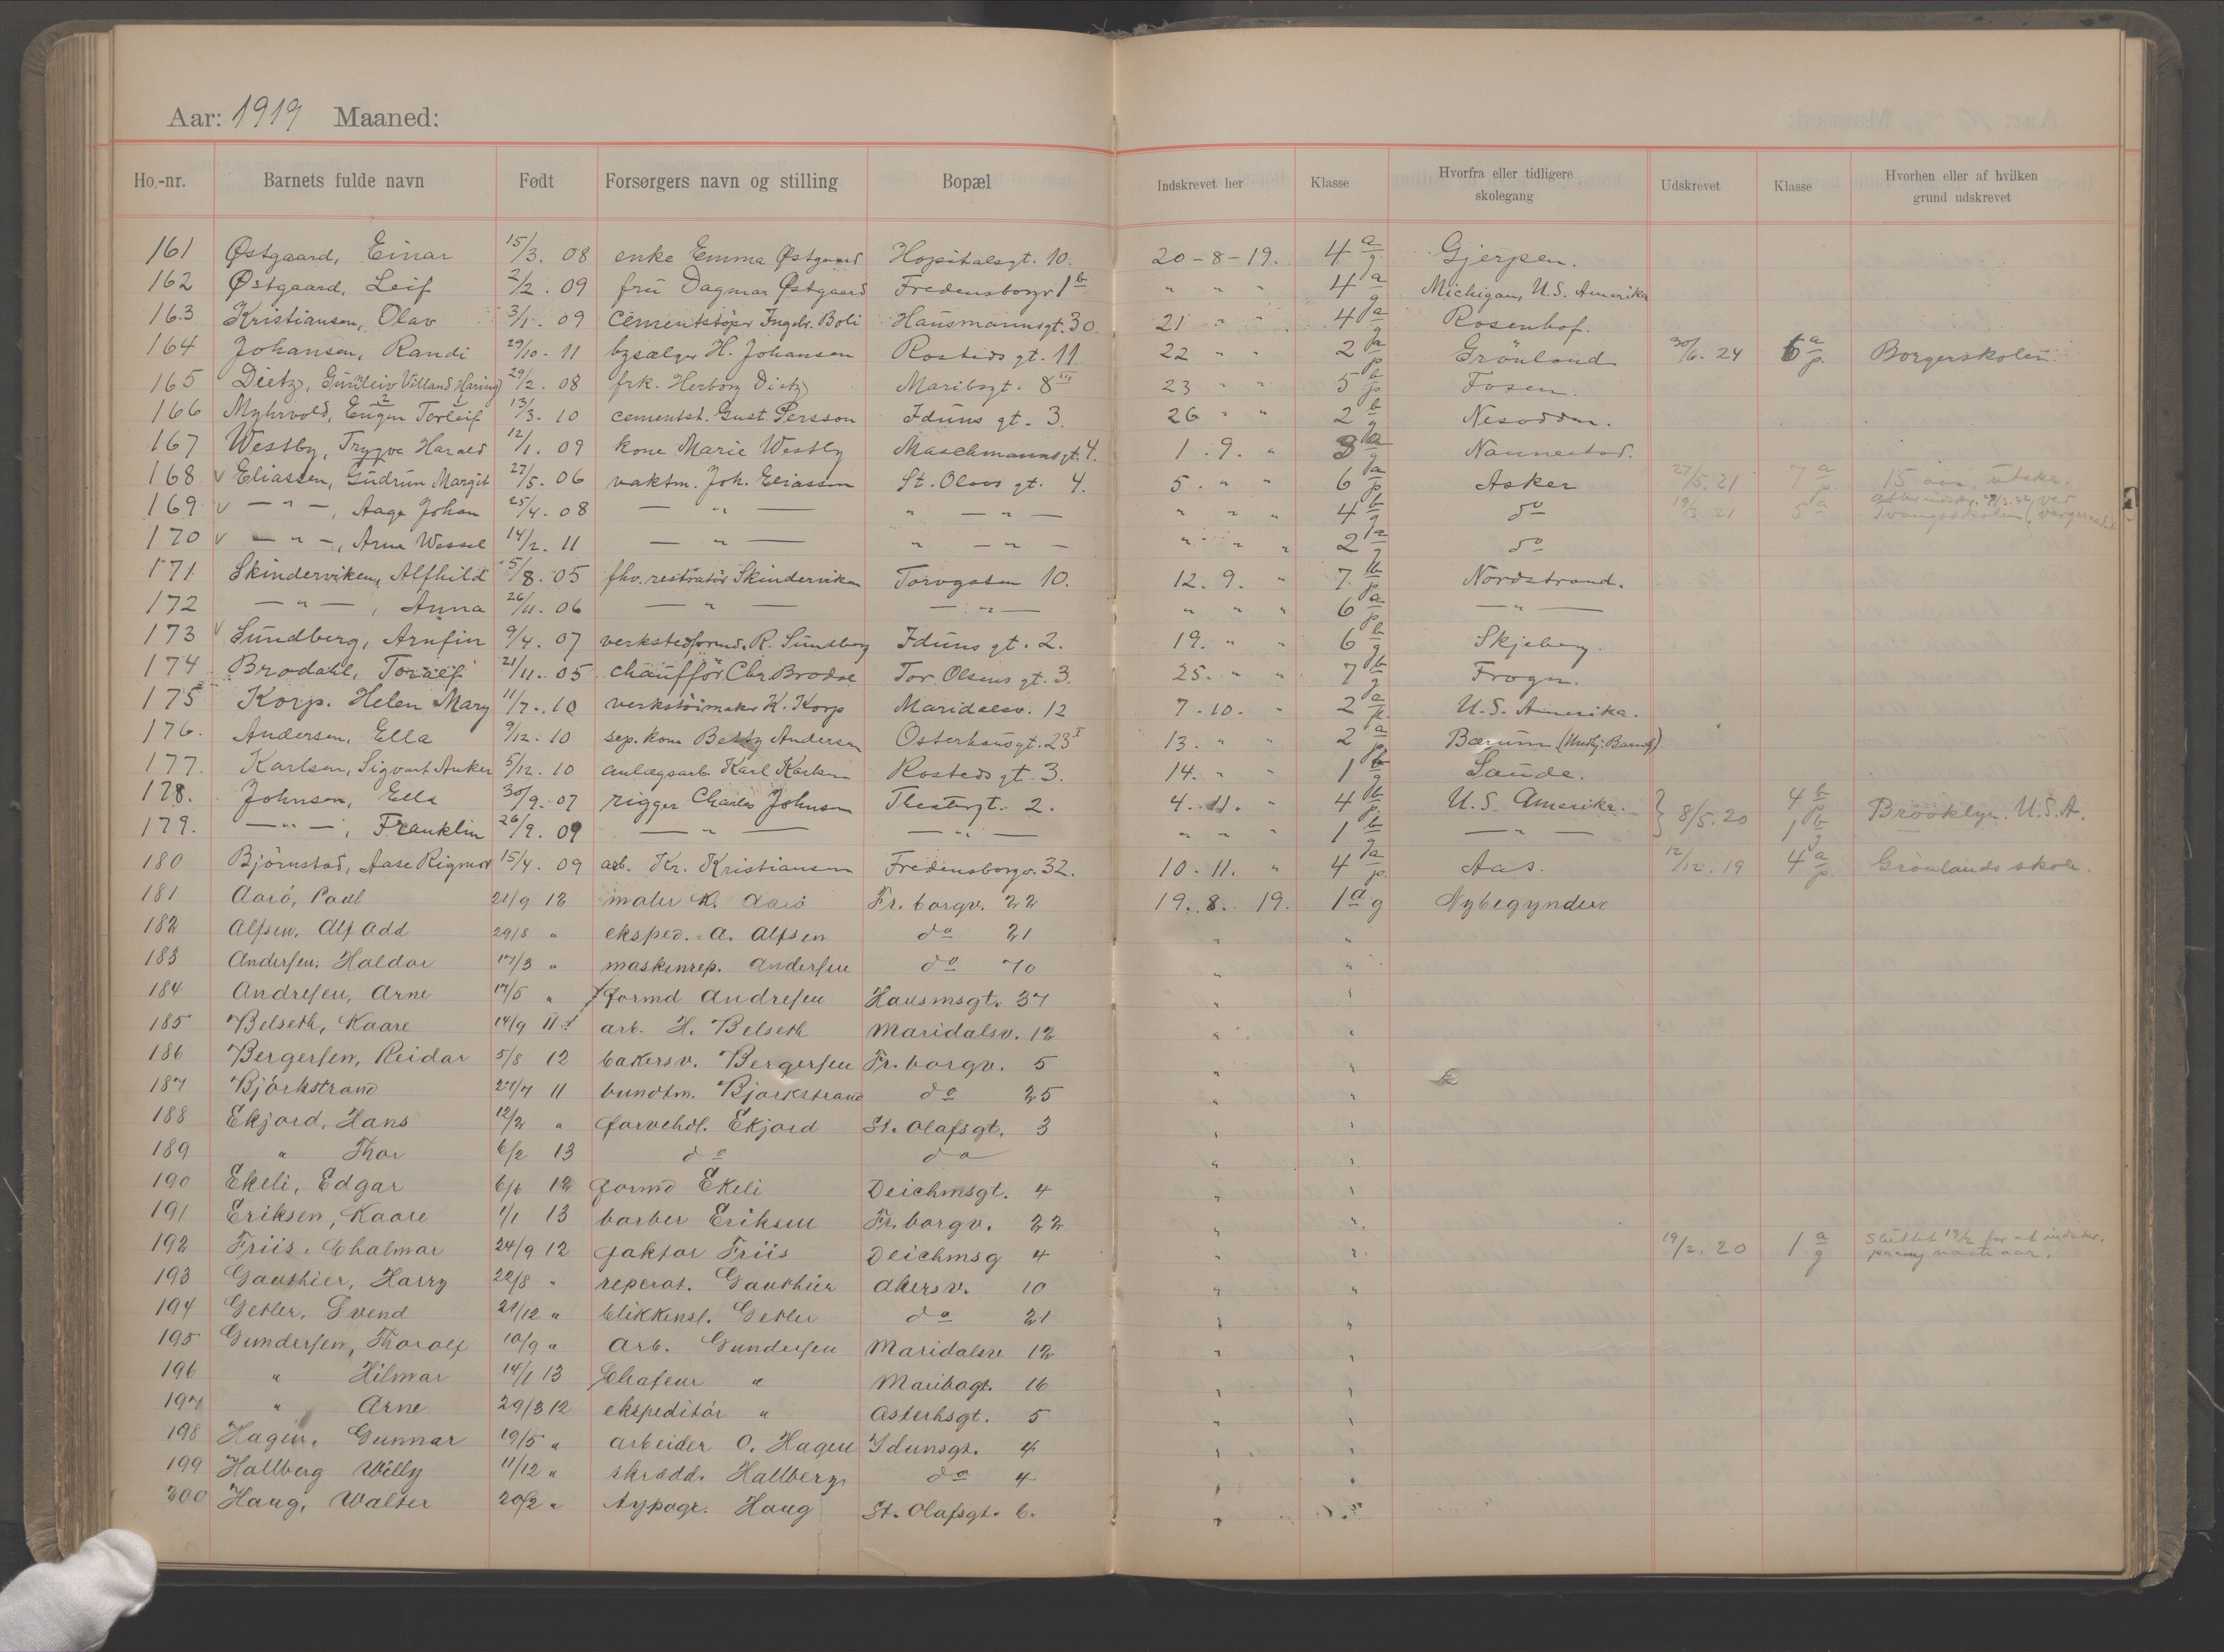 Aar: 1919 Maaned:
Ho.-nr. Barnets fulde navn Født Forsørgers navn og stilling Bopæl Indskrevet her Klasse Hvorfra eller tidligere skolegang Udskrevet Klasse Hvorhen eller af hvilken grund udskrevet
161 Østgaard, Einar 15/3. 08 enke Emma Østgaard Hopitalsgt. 10. 20-8-19. 4 a/g Gjerpen.
162 Østgaard, Leif 2/2. 09 frü Dagmar Østgaard Fredensborgv 1 b " " " 4 a/g Michigan, U.S. Amerika
163 Kristiansen, Olav 3/1. 09 Cementstøper Ingebr. Boli Hausmannsgt. 30. 21 " " 4 a/g Rosenhof.
164 Johansen, Randi 29/10. 11 bysælger H. Johansen Rosteds gt. 11 22 " " 2 a/p Grönland 30/6. 24 6 a/p. Borgerskolen
165 Dietz, Gunleiv Villand Haring 29/2. 08 frk. Herborg Dietz Maribogt. 8 III 23 " " 5 b/p Fosen.
166 Myhrvold, Eugen Torleif 13/3. 10 cementst. Gust. Persson Iduns gt. 3. 26 " " 2 b/g Nesodden.
167 Westby, Trygve Harald 12/1. 09 kone Marie Westby Maschmannsgt. 4. 1. 9. " 3 a/g Nannestad.
168 v Eliassen, Gudrun Margit 27/5. 06 vaktm. Joh. Eliassen St. Olavs gt. 4. 5. " " 6 a/p Asker 27/5. 21 7 a/p 15 aar, utskr.
169 v — " —, Aage Johan 25/4. 08 — " — " — " — " " " 4 b/g do 19/3. 21 5 a Tvangsskolen
170 v — " —, Arne Wessel 14/2. 11 — " — " — " — " " " 2 a/g do
171 Skinderviken, Alfhild 5/8. 05 fhv. restratør Skinderviken Torvgaten 10. 12. 9. " 7. b/p Nordstrand.
172 — " —, Anna 26/11. 06 — " — — " — " " " 6 a/p — " —
173 v Sundberg, Arnfin 9/4. 07 verkstedformd. R. Sundberg Iduns gt. 2. 19. " " 6 b/g Skjeberg.
174 Brodahl, Toralf 21/11. 05 chauffør Chr Brodal Tor Olsens gt. 3. 25. " " 7 b/g Frogn.
175 Korp. Helen Mary 11/7. 10 verkstöimaker K. Korp Maridalsv. 12 7. 10. " 2 a/p. U.S. Amerika.
176. Andersen, Ella 9/12. 10 sep. kone Betty Andersen Osterhausgt. 23 I 13. " " 2 a/p Bærum
177. Karlsen, Sigvart Anker 5/12. 10 anlægsarb. Karl Karlsen Rosteds gt. 3. 14. " " 1 b/g Saude.
178. Johnsen, Ella 30/9. 07 rigger Charles Johnsen Thestergt. 2. 4. 11. " 4 b/p U.S. Amerika. } 8/5. 20 4 b/p Brooklyn. U.S.A.
179. — " —, Franklin 26/9. 09 — " — — " — " " " 1 b/g — " — 1 b/g
180 Björnstad, Aase Rigmor 15/4. 09 arb. Kr. Kristiansen Fredensborgv. 32. 10. 11. " 4 a/p. Aas. 12/12. 19 4 a/p Grönlands skole.
181 Aarö, Paul 21/9 12 maler K. Aarö Fr. borgv. 22 19. 8. 19. 1 a g Nybegyndere
182 Alfsen, Alf Odd 29/8 " eksped. A. Alfsen do 21 " "
183 Andersen. Haldor 17/3 " maskinrep. Andersen do 70 " "
184 Andresen, Arne 17/5 " formd Andresen Hausmsgt. 37 " "
185 Belseth, Kaare 14/9 11 arb. H. Belseth Maridalsv. 12 " "
186 Bergersen, Reidar 5/8 12 bakersv. Bergersen Fr. borgv. 5 " "
187 Björkstrand 27/7 11 bundtm. Bjorkstrand do 25 " "
188 Ekjord, Hans 12/2 " farvehdl. Ekjord St. Olafsgt. 3 " "
189 " Thor 6/2 13 do do " "
190 Ekeli, Edgar 6/6 12 formd Ekeli Deichmsgt. 4 " "
191 Eriksen, Kaare 1/1 13 barber Eriksen Fr. borgv. 22 " "
192 Friis, Chalmar 24/9 12 faktor Friis Deichmsg 4 " " 19/2. 20 1 a/g Sluttet 19/2 for at indskr. paany næste aar.
193 Gauthier, Harry 22/8 " reperat. Gauthier Akersv. 10 " "
194 Getler, Svend 21/12 " blikkensl. Getler do 21 " "
195 Gundersen, Thorolf 10/9 " Arb. Gundersen Maridalsv 12 " "
196 " Hilmar 14/1 13 Chafeur " Maribogt. 16 " "
197 " Arne 29/3 12 ekspeditör " Osterhsgt. 5 " "
198 Hagen, Gunnar 19/5 " arbeider O. Hagen Idunsgt. 4 " "
199 Hallberg Willy 11/12 " skrædd. Hallberg do 4 " "
200 Haug, Walter 20/2 " typogr. Haug St. Olafsgt. 6. " "